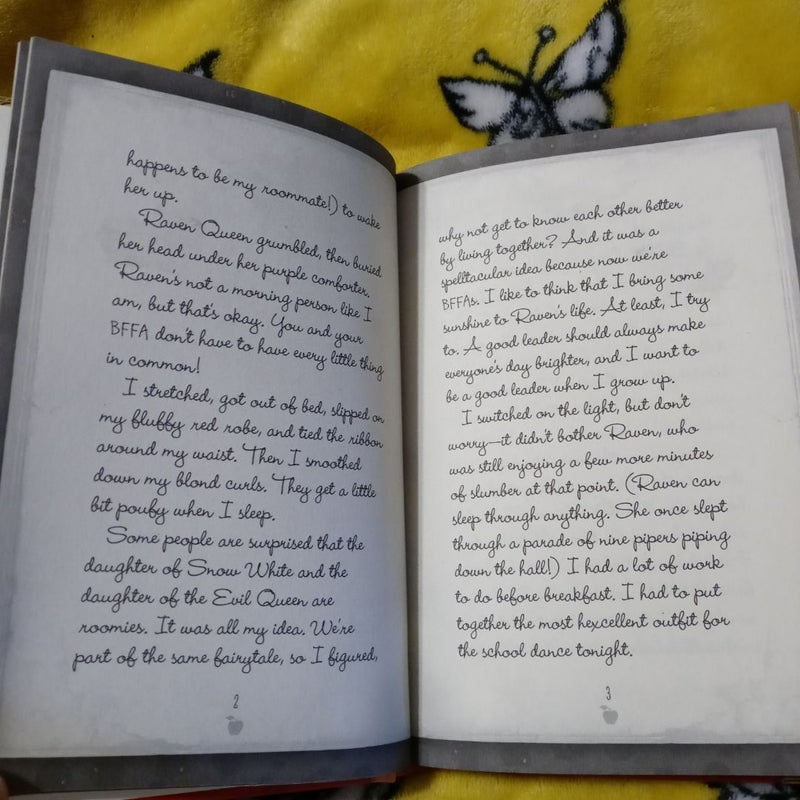 happens to be my roommate!) to wake
her up.
Raven Queen grumbled, then buried
her head under her purple comforter.
Raven's not a morning person like I
am, but that's okay. You and your
BFFA don't have to have every little thing
in common!
I stretched, got out of bed, slipped on
my fluffy red robe, and tied the ribbon
around my waist. Then I smoothed
down my blond curls. They get a little
bit poufy when I sleep.
Some people are surprised that the
daughter of Snow White and the
daughter of the Evil Queen are
roomies. It was all my idea. We're
part of the same fairytale, so I figured,
2
why not get to know each other better
by living together? And it was a
spelltacular idea because now we're
BFFAs. I like to think that I bring some
sunshine to Raven's life. At least, I try
to. A good leader should always make
everyone's day brighter, and I want to
be a good leader when I grow up.
I switched on the light, but don't
worry—it didn't bother Raven, who
was still enjoying a few more minutes
of slumber at that point. (Raven can
sleep through anything. She once slept
through a parade of nine pipers piping
down the hall!) I had a lot of work
to do before breakfast. I had to put
together the most hexcellent outfit for
the school dance tonight.
3